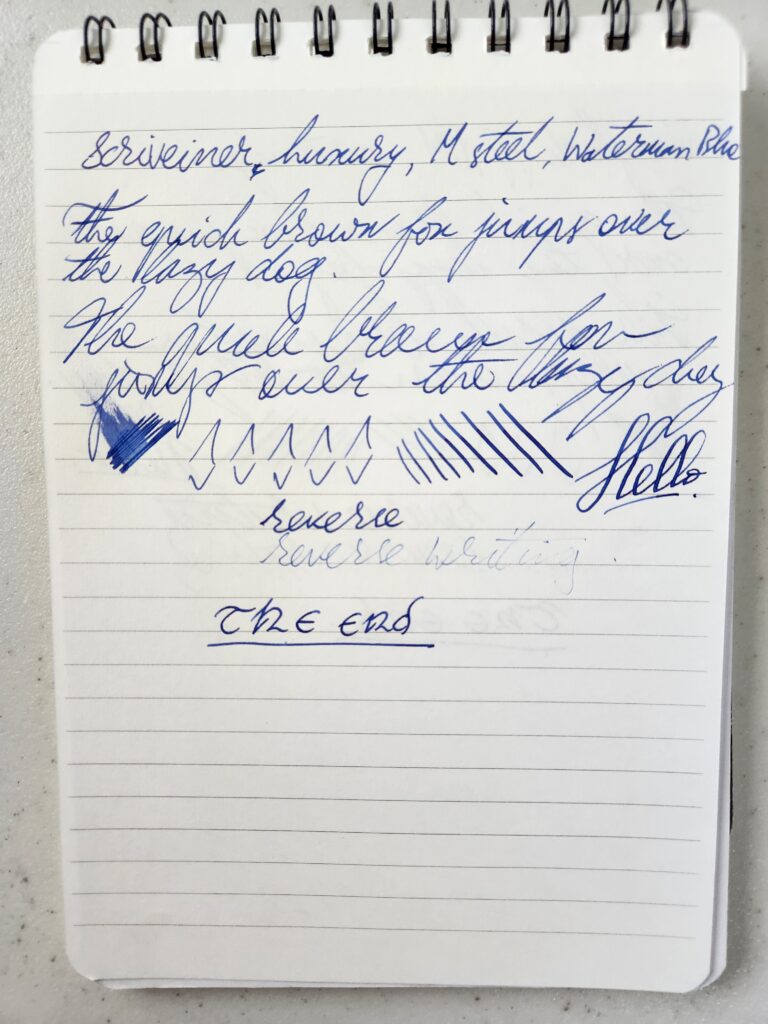 Scriveiner, Luxury, M steel, Waterman Blue
The quick brown fox jumps over
the lazy dog.
The quick brown fox
jumps over the lazy dog
Hello.
reverse
reverse writing.
THE END